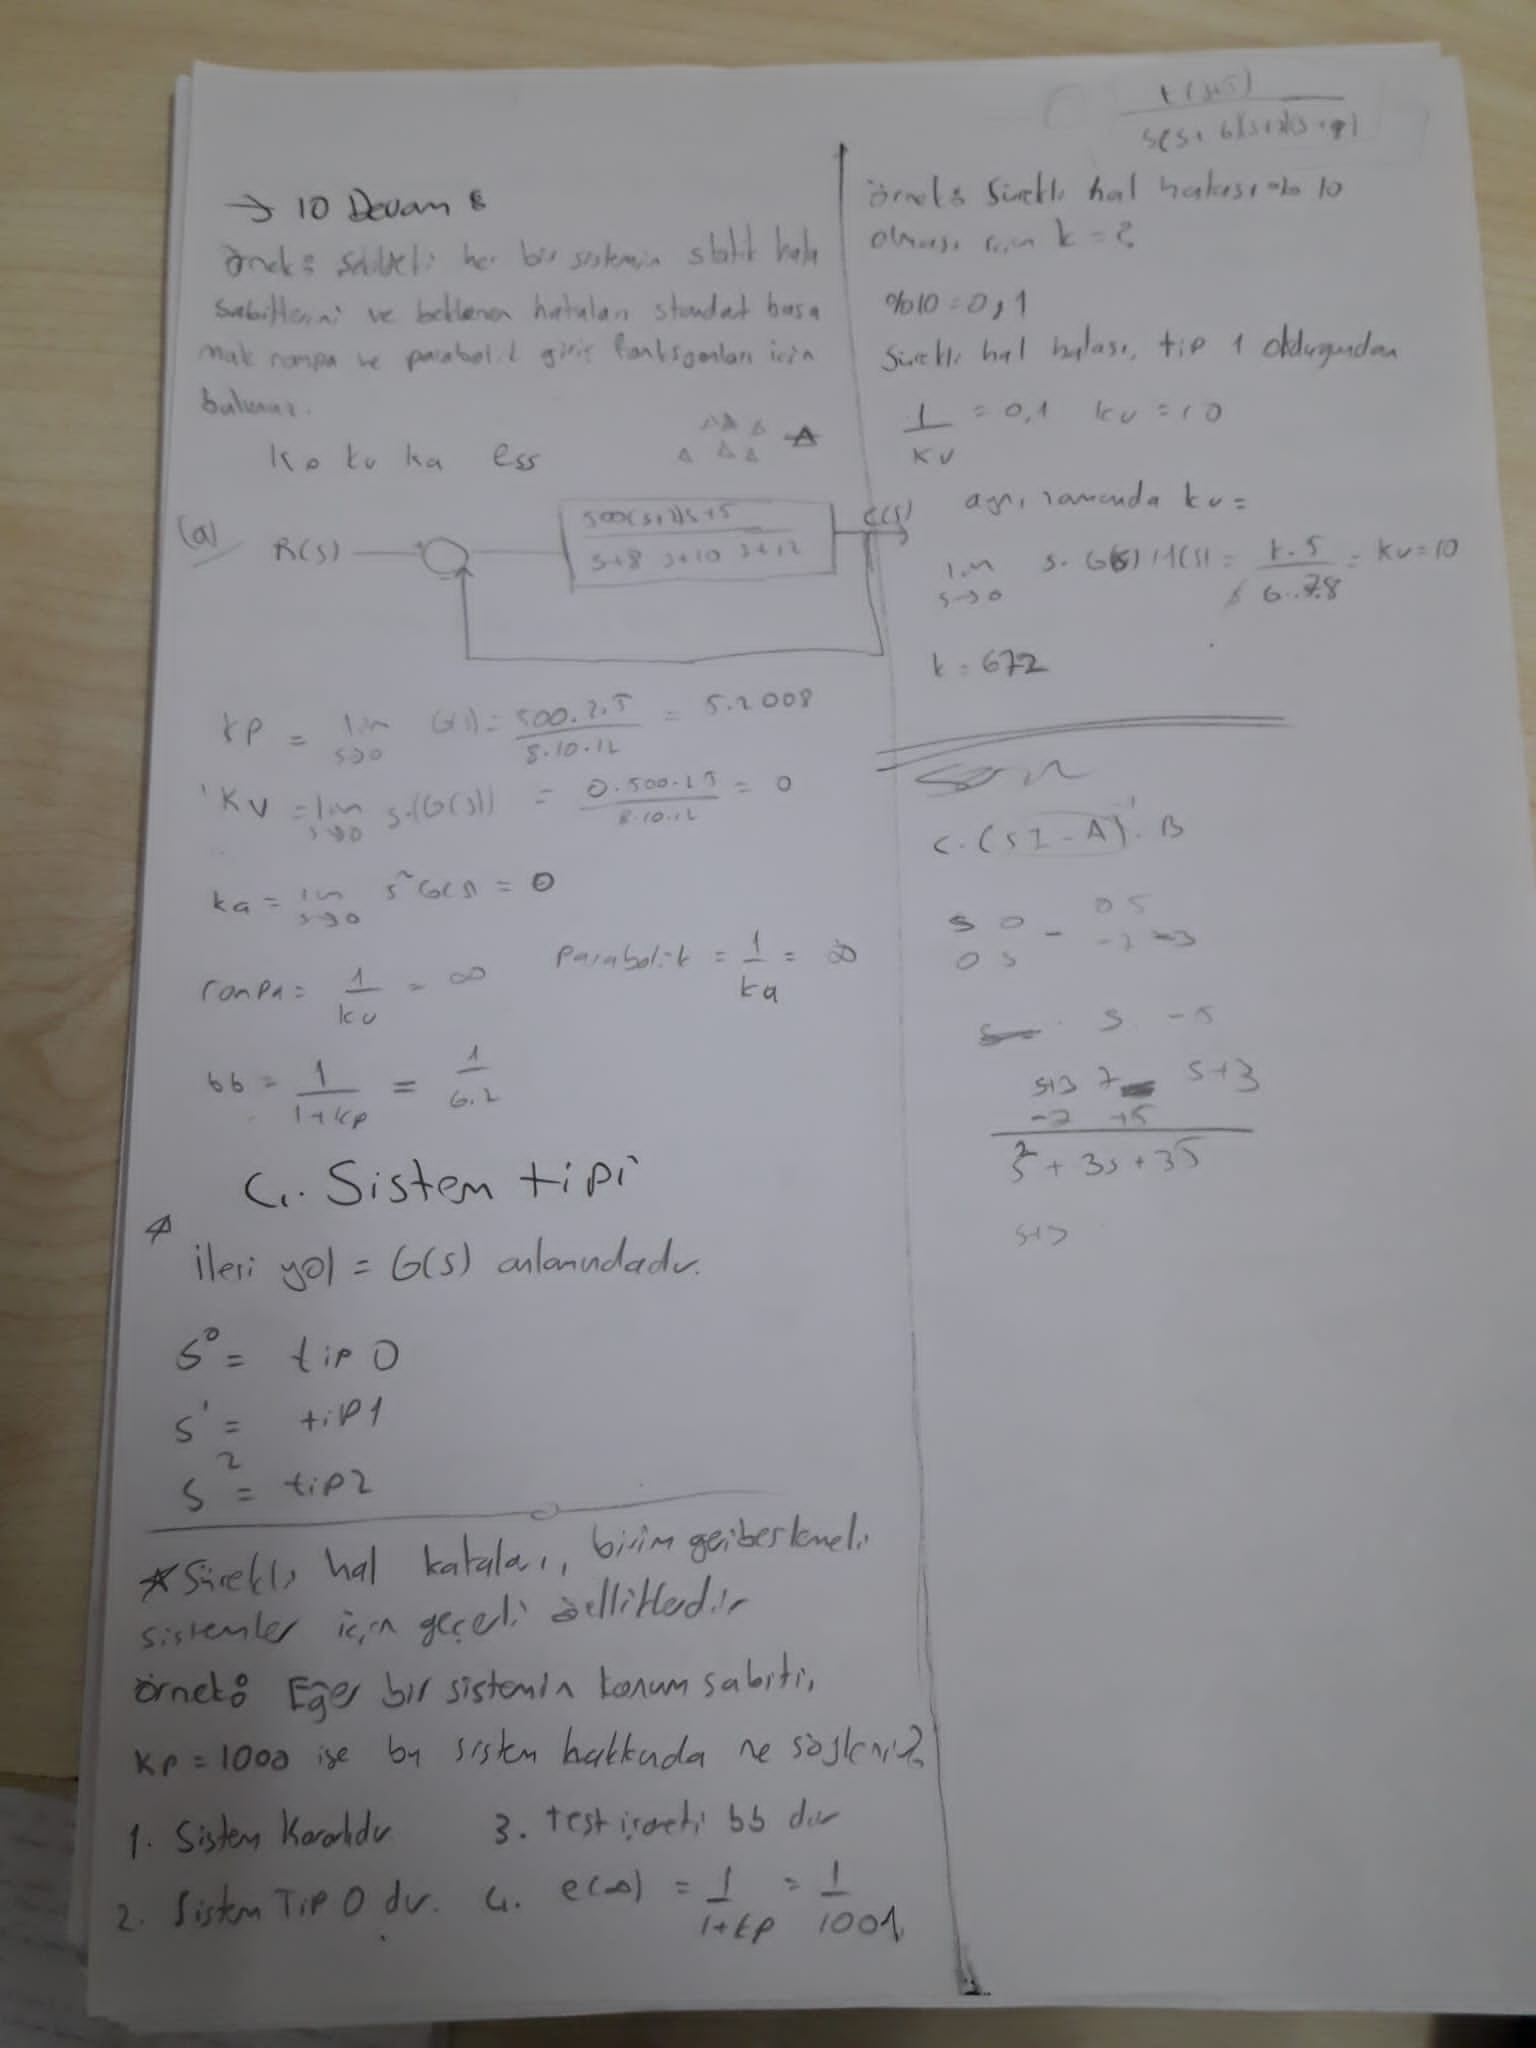 → 10 Devam :
örnek: Şekildeki her bir sistemin statik hata
sabitlerini ve beklenen hataları standart basa
mak rampa ve parabolik giriş fonksiyonları için
bulunuz.
Kp kv ka ess
(a) R(s)
500(s+2)s+5
s+8 s+10 s+12
C(s)
kp = lim s→0 G(s) = 500.2.5 / 8.10.12 = 5.2008
Kv = lim s→0 s.(G(s)) = 0.500.2.5 / 8.10.12 = 0
ka = lim s→0 s² G(s) = 0
rampa = 1/kv = ∞ parabolik = 1/ka = ∞
bb = 1/1+kp = 1/6.2
4. Sistem tipi
ileri yol = G(s) anlamındadır.
s⁰ = tip 0
s¹ = tip1
s² = tip2
* Sürekli hal hataları, birim geribeslemeli
sistemler için geçerli özelliklerdir
örnek: Eğer bir sistemin konum sabiti,
Kp = 1000 ise bu sistem hakkında ne söylenir?
1. Sistem Kararlıdır 3. test işareti bb dır
2. Sistem Tip 0 dır. 4. e(∞) = 1/1+kp = 1/1001
k(s+5)
s(s+6)(s+7)(s+8)
örnek: Sürekli hal hatası %10
olması için k = ?
%10 = 0,1
Sürekli hal hatası, tip 1 olduğundan
1/Kv = 0,1 kv = 10
aynı zamanda kv =
lim s→0 s. G(s) H(s) = k.5 / 6.7.8 = kv=10
k = 672
Son
C.(sI - A)⁻¹. B
s 0 - 0 5
0 s -7 -3
s -5
s+3 7 s+3
-7 +5
s² + 3s + 35
s+3